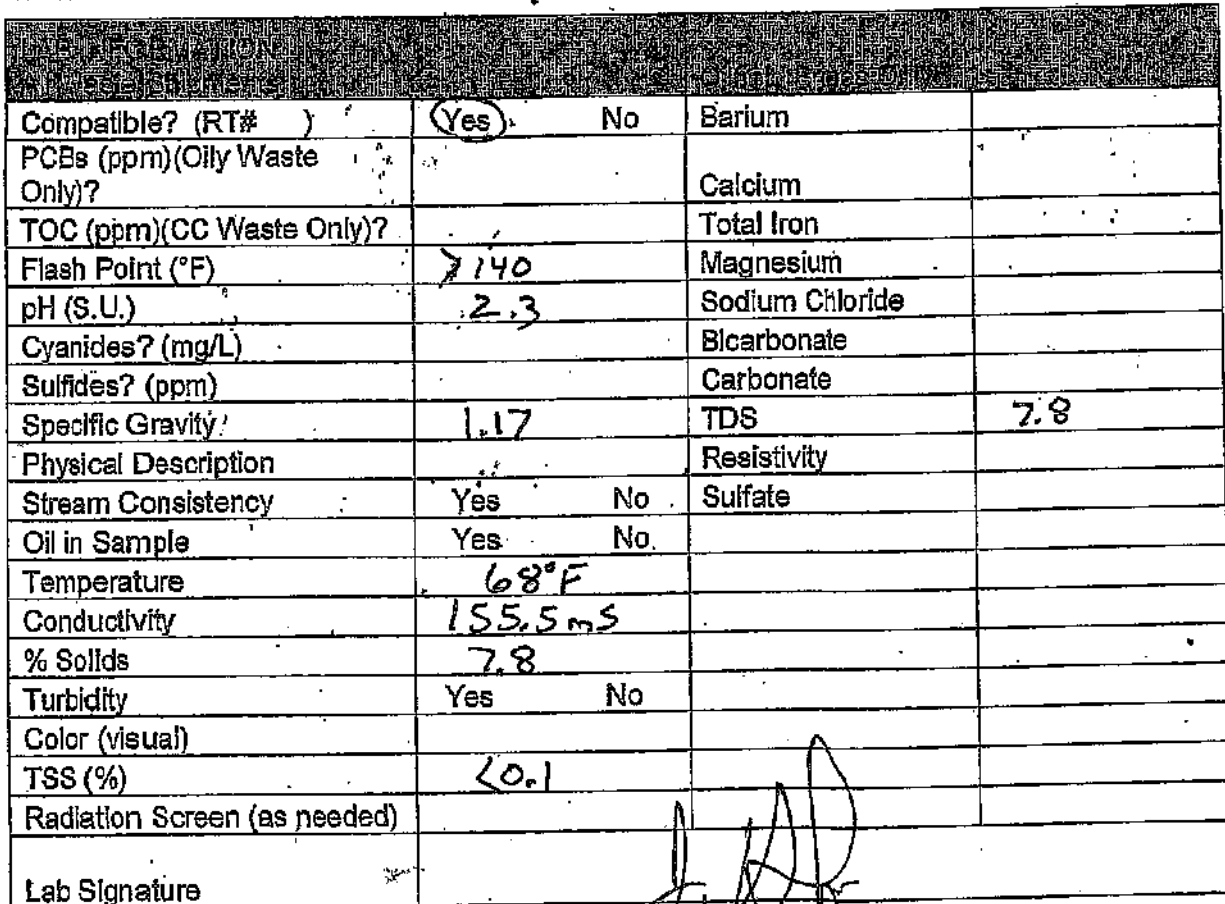 LAB INFORMATION
Compatible? (RT# ) Yes No Barium
PCBs (ppm)(Oily Waste
Only)? Calcium
TOC (ppm)(CC Waste Only)? Total Iron
Flash Point (°F) >140 Magnesium
pH (S.U.) 2.3 Sodium Chloride
Cyanides? (mg/L) Bicarbonate
Sulfides? (ppm) Carbonate
Specific Gravity 1.17 TDS 7.8
Physical Description Resistivity
Stream Consistency Yes No Sulfate
Oil in Sample Yes No
Temperature 68°F
Conductivity 155.5 mS
% Solids 7.8
Turbidity Yes No
Color (visual)
TSS (%) <0.1
Radiation Screen (as needed)
Lab Signature